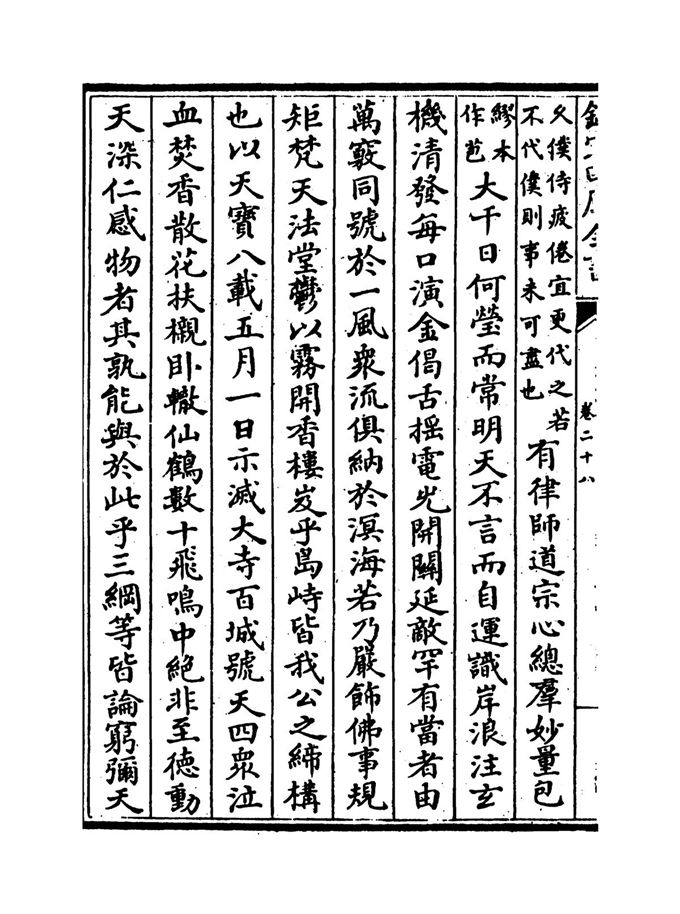 欽定四庫全書
卷二十八
久僕侍疲倦宜更代之若
不代僕則事未可盡也
有律師道宗心總羣妙量包
繆本
作茫
大千日何瑩而常明天不言而自運識岸浪注玄
機清發每口演金偈舌揺電光開關延敵罕有當者由
萬竅同號於一風衆流俱納於溟海若乃嚴飾佛事規
矩梵天法堂鬱以霧開香樓岌乎島峙皆我公之締構
也以天寳八載五月一日示滅大寺百城號天四衆泣
血焚香散花扶櫬卧轍仙鶴數十飛鳴中絶非至徳動
天深仁感物者其孰能與於此乎三綱等皆論窮彌天